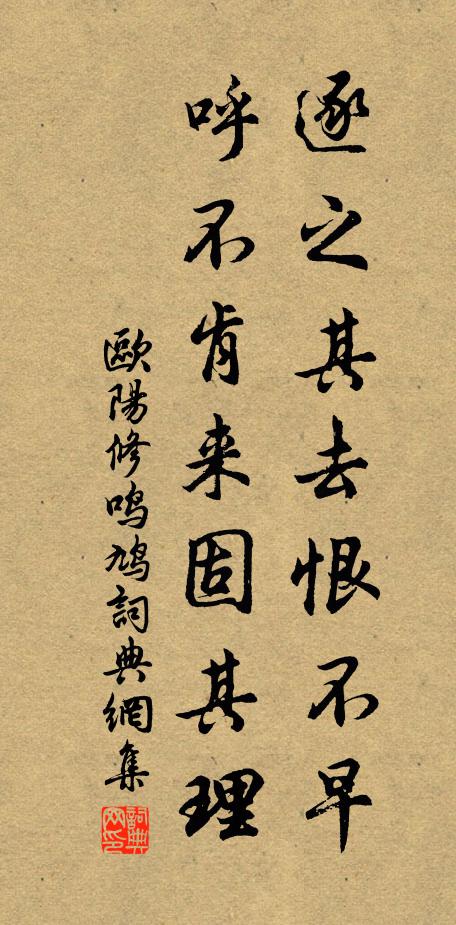 逐之其去恨不早
呼不肯来固其理
歐陽修鸣鸠詞典網集
詞典网印